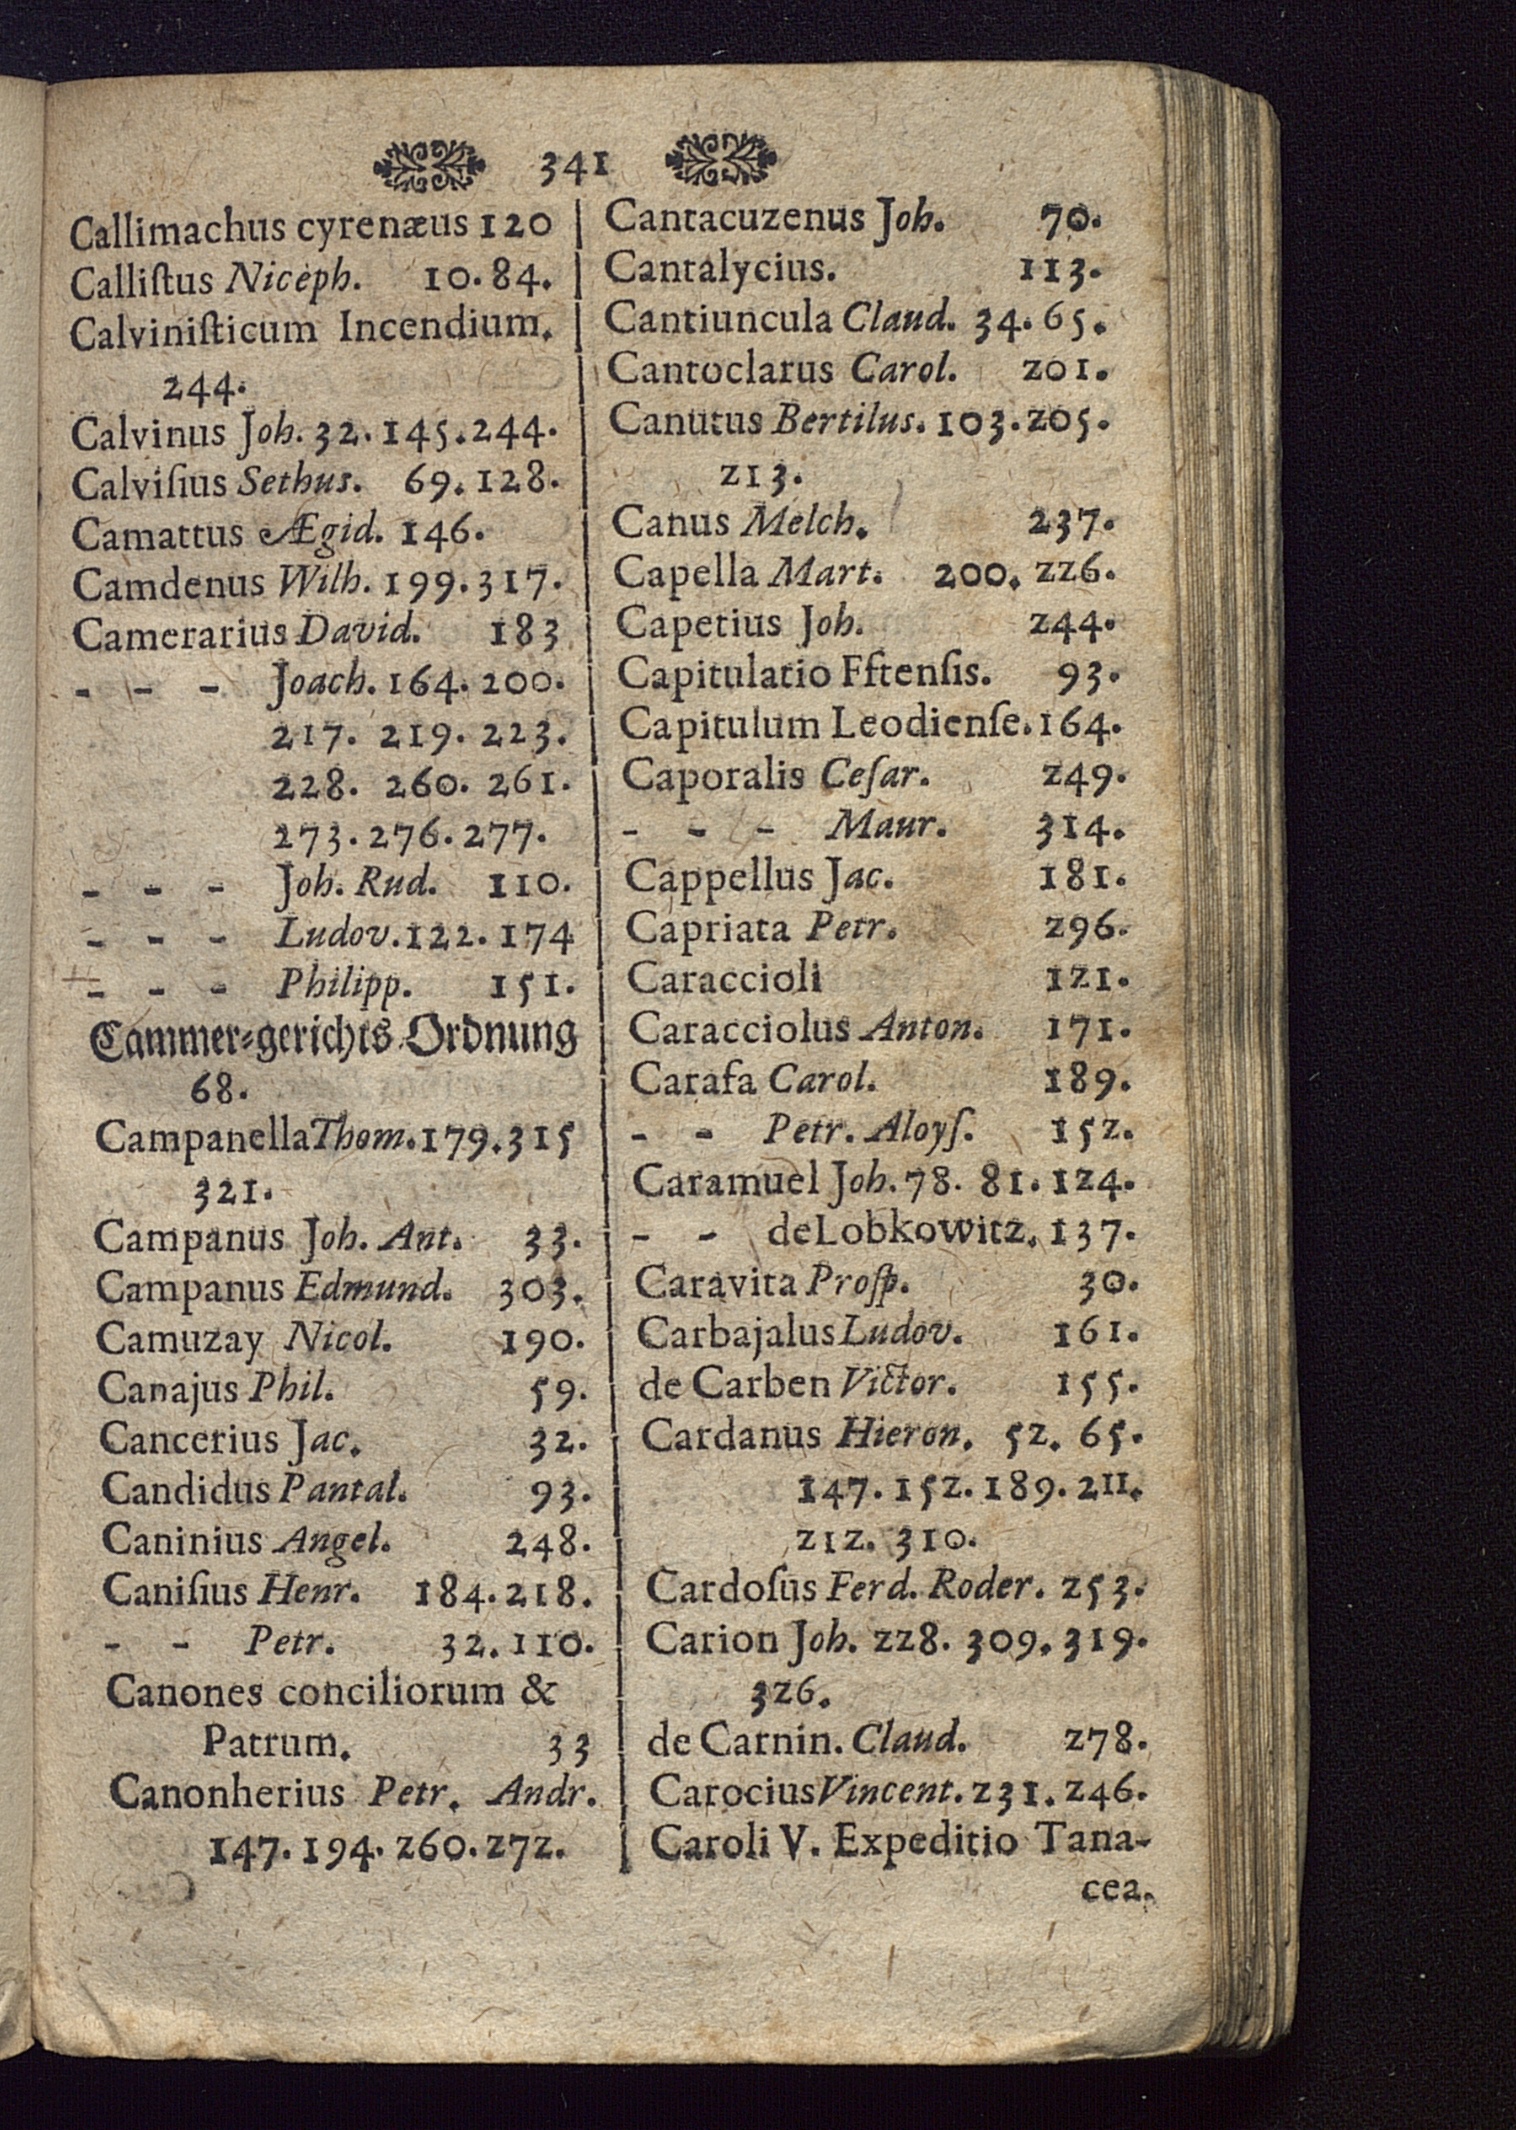 341
Callimachus cyrenæus 120
Calliſtus Niceph. 10. 84.
Calviniſticum Incendium.
244.
Calvinus Joh. 32. 145. 244.
Calviſius Sethus. 69. 128.
Camattus Ægid. 146.
Camdenus Wilh. 199. 317.
Camerarius David. 183
- - - Joach. 164. 200.
217. 219. 223.
228. 260. 261.
273. 276. 277.
- - - Joh. Rud. 110.
- - - Ludov. 122. 174
- - - Philipp. 151.
Cammer-gerichts Ordnung
68.
Campanella Thom. 179. 315
321.
Campanus Joh. Ant. 33.
Campanus Edmund. 303.
Camuzay Nicol. 190.
Canajus Phil. 59.
Cancerius Jac. 32.
Candidus Pantal. 93.
Caninius Angel. 248.
Caniſius Henr. 184. 218.
- - Petr. 32. 110.
Canones conciliorum &
Patrum. 33
Canonherius Petr. Andr.
147. 194. 260. 272.
Cantacuzenus Joh. 70.
Cantalycius. 113.
Cantiuncula Claud. 34. 65.
Cantoclarus Carol. 201.
Canutus Bertilus. 103. 205.
213.
Canus Melch. 237.
Capella Mart. 200. 226.
Capetius Joh. 244.
Capitulatio Fftenſis. 93.
Capitulum Leodienſe. 164.
Caporalis Ceſar. 249.
- - - Maur. 314.
Cappellus Jac. 181.
Capriata Petr. 296.
Caraccioli 121.
Caracciolus Anton. 171.
Carafa Carol. 189.
- - Petr. Aloyſ. 152.
Caramuel Joh. 78. 81. 124.
- - de Lobkowitz. 137.
Caravita Proſp. 30.
Carbajalus Ludov. 161.
de Carben Victor. 155.
Cardanus Hieron. 52. 65.
147. 152. 189. 211.
212. 310.
Cardoſus Ferd. Roder. 253.
Carion Joh. 228. 309. 319.
326.
de Carnin. Claud. 278.
Carocius Vincent. 231. 246.
Caroli V. Expeditio Tana-
cea.